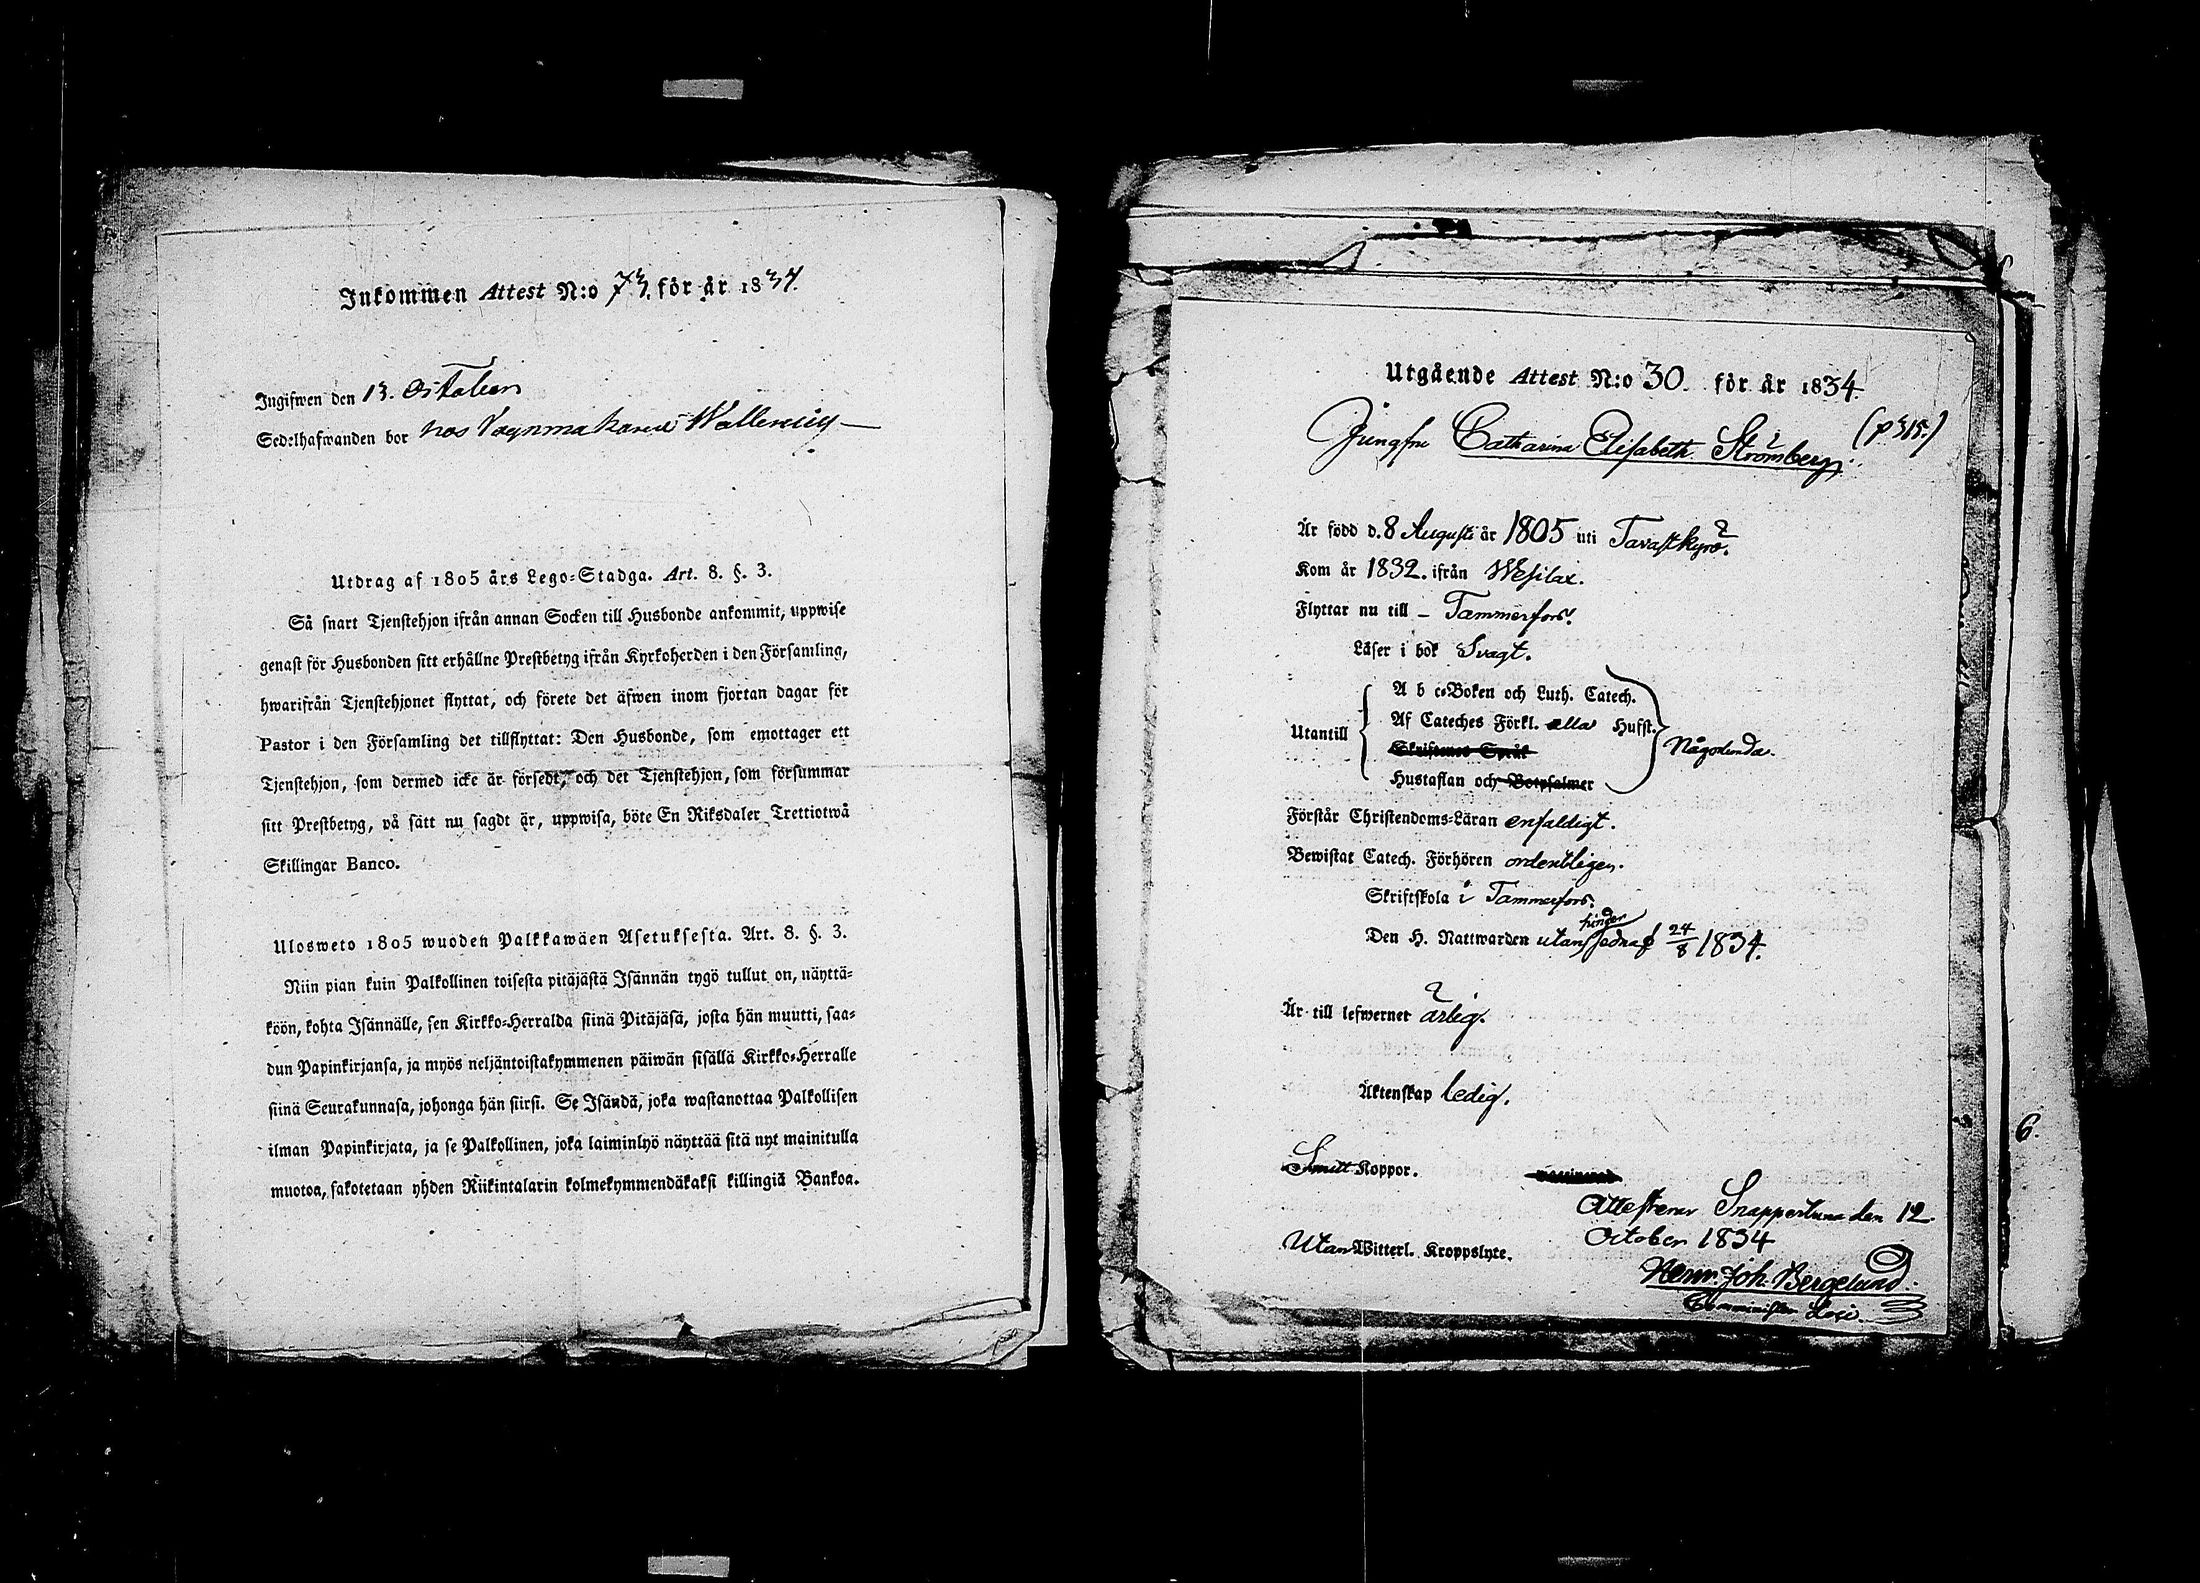 Inkommen Attest N:o 73. för år 1834.
Ingifwen den 13. October
Sedelhafwanden bor hos Vagnmakaren
Utdrag af 1805 års Lego-Stadga. Art. 8. §. 3.
Så snart Tjenstehjon ifrån annan Socken till Husbonde ankommit, uppwise
genast för Husbonden sitt erhållne Prestbetyg ifrån Kyrkoherden i den Församling,
hwarifrån Tjenstehjonet flyttat, och förete det äfwen inom fjortan dagar för
Pastor i den Församling det tillflyttat: Den Husbonde, som emottager ett
Tjenstehjon, som dermed icke är försedt, och det Tjenstehjon, som försummar
sitt Prestbetyg, på sätt nu sagdt är, uppwisa, böte En Riksdaler Trettiotwå
Skillingar Banco.
Ulosweto 1805 wuoden Palkkawäen Asetuksesta. Art. 8. §. 3.
Niin pian kuin Palkollinen toisesta pitäjästä Isännän tygö tullut on, näyttä-
köön, kohta Isännälle, sen Kirkko-Herralda siinä Pitäjäsä, josta hän muutti, saa-
dun Papinkirjansa, ja myös neljäntoistakymmenen päiwän sisällä Kirkko-Herralle
siinä Seurakunnasa, johonga hän siirsi. Se Isändä, joka wastanottaa Palkollisen
ilman Papinkirjata, ja se Palkollinen, joka laiminlyö näyttää sitä nyt mainitulla
muotoa, sakotetaan yhden Riikintalarin kolmekymmendäkaksi killingiä Bankoa.
Utgående Attest N:o 30. för år 1834.
Jungfru Catharina Elisabeth Strömberg (p 315.)
Är född d. 8 Augusti år 1805 uti Tavastkyrö.
Kom år 1832. ifrån Wesilax.
Flyttar nu till – Tammerfors.
Läser i bok Svagt.
A b c-Boken och Luth. Catech.
Af Cateches Förkl. alla Hufst.
Utantill Någorlunda.
Skriftenes Språk
Hustaflan och Botpsalmer
Förstår Christendoms-Läran enfaldigt.
Bewistat Catech. Förhören ordentligen.
Skriftskola i Tammerfors.
hinder
Den H. Nattwarden utan sednast 24/8 1834.
Är till lefwernet ärlig.
Äktenskap ledig.
Smitt Koppor.
Attesterar Snappertuna den 12
October 1834
Utan Witterl. Kroppslyte.
Henr. Joh. Bergelund.
Comminister Loci.
6.